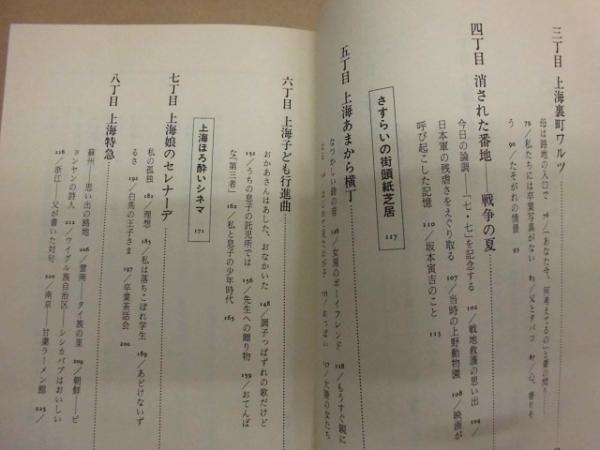 三丁目 上海裏町ワルツ
母は路地の入口で
78／私たちには卒業写真がない 81／父とタバコ
う 90／たそがれの情景 95
四丁目 消された番地 戦争の夏
今日の論調 「七・七」を記念する 102／戦地救護の思い出 104／
日本軍の残虐さをえぐり取る 107／当時の上野動物園 108／映画が
呼び起こした記憶 110／坂本寅吉のこと 113
さすらいの街頭紙芝居 117
五丁目 上海あまから横丁
なつかしい鈴の音
女房のボーイフレンド
もうすぐ親に
六丁目 上海子ども行進曲
おかあさんはあした、おなかいた 148／調子っぱずれの歌だけど
152／うちの息子の託児所では 156／先生への贈り物 159／おてんば
な「第三者」 162／私と息子の少年時代 165
上海ほろ酔いシネマ 171
七丁目 上海娘のセレナーデ
私の孤独 182／理想 185／私は落ちこぼれ学生 189／あどけないず
るさ 192／白馬の王子さま 197／卒業茶話会 202
八丁目 上海特急
蘇州──思い出の路地 206／雲南──タイ族の里 209／朝鮮──ピ
ョンヤンの詩人 212／ウイグル族自治区──シシカバブはおいしい
216／浙江──父が書いた対句 220／南京──甘栗ラーメン館 223／